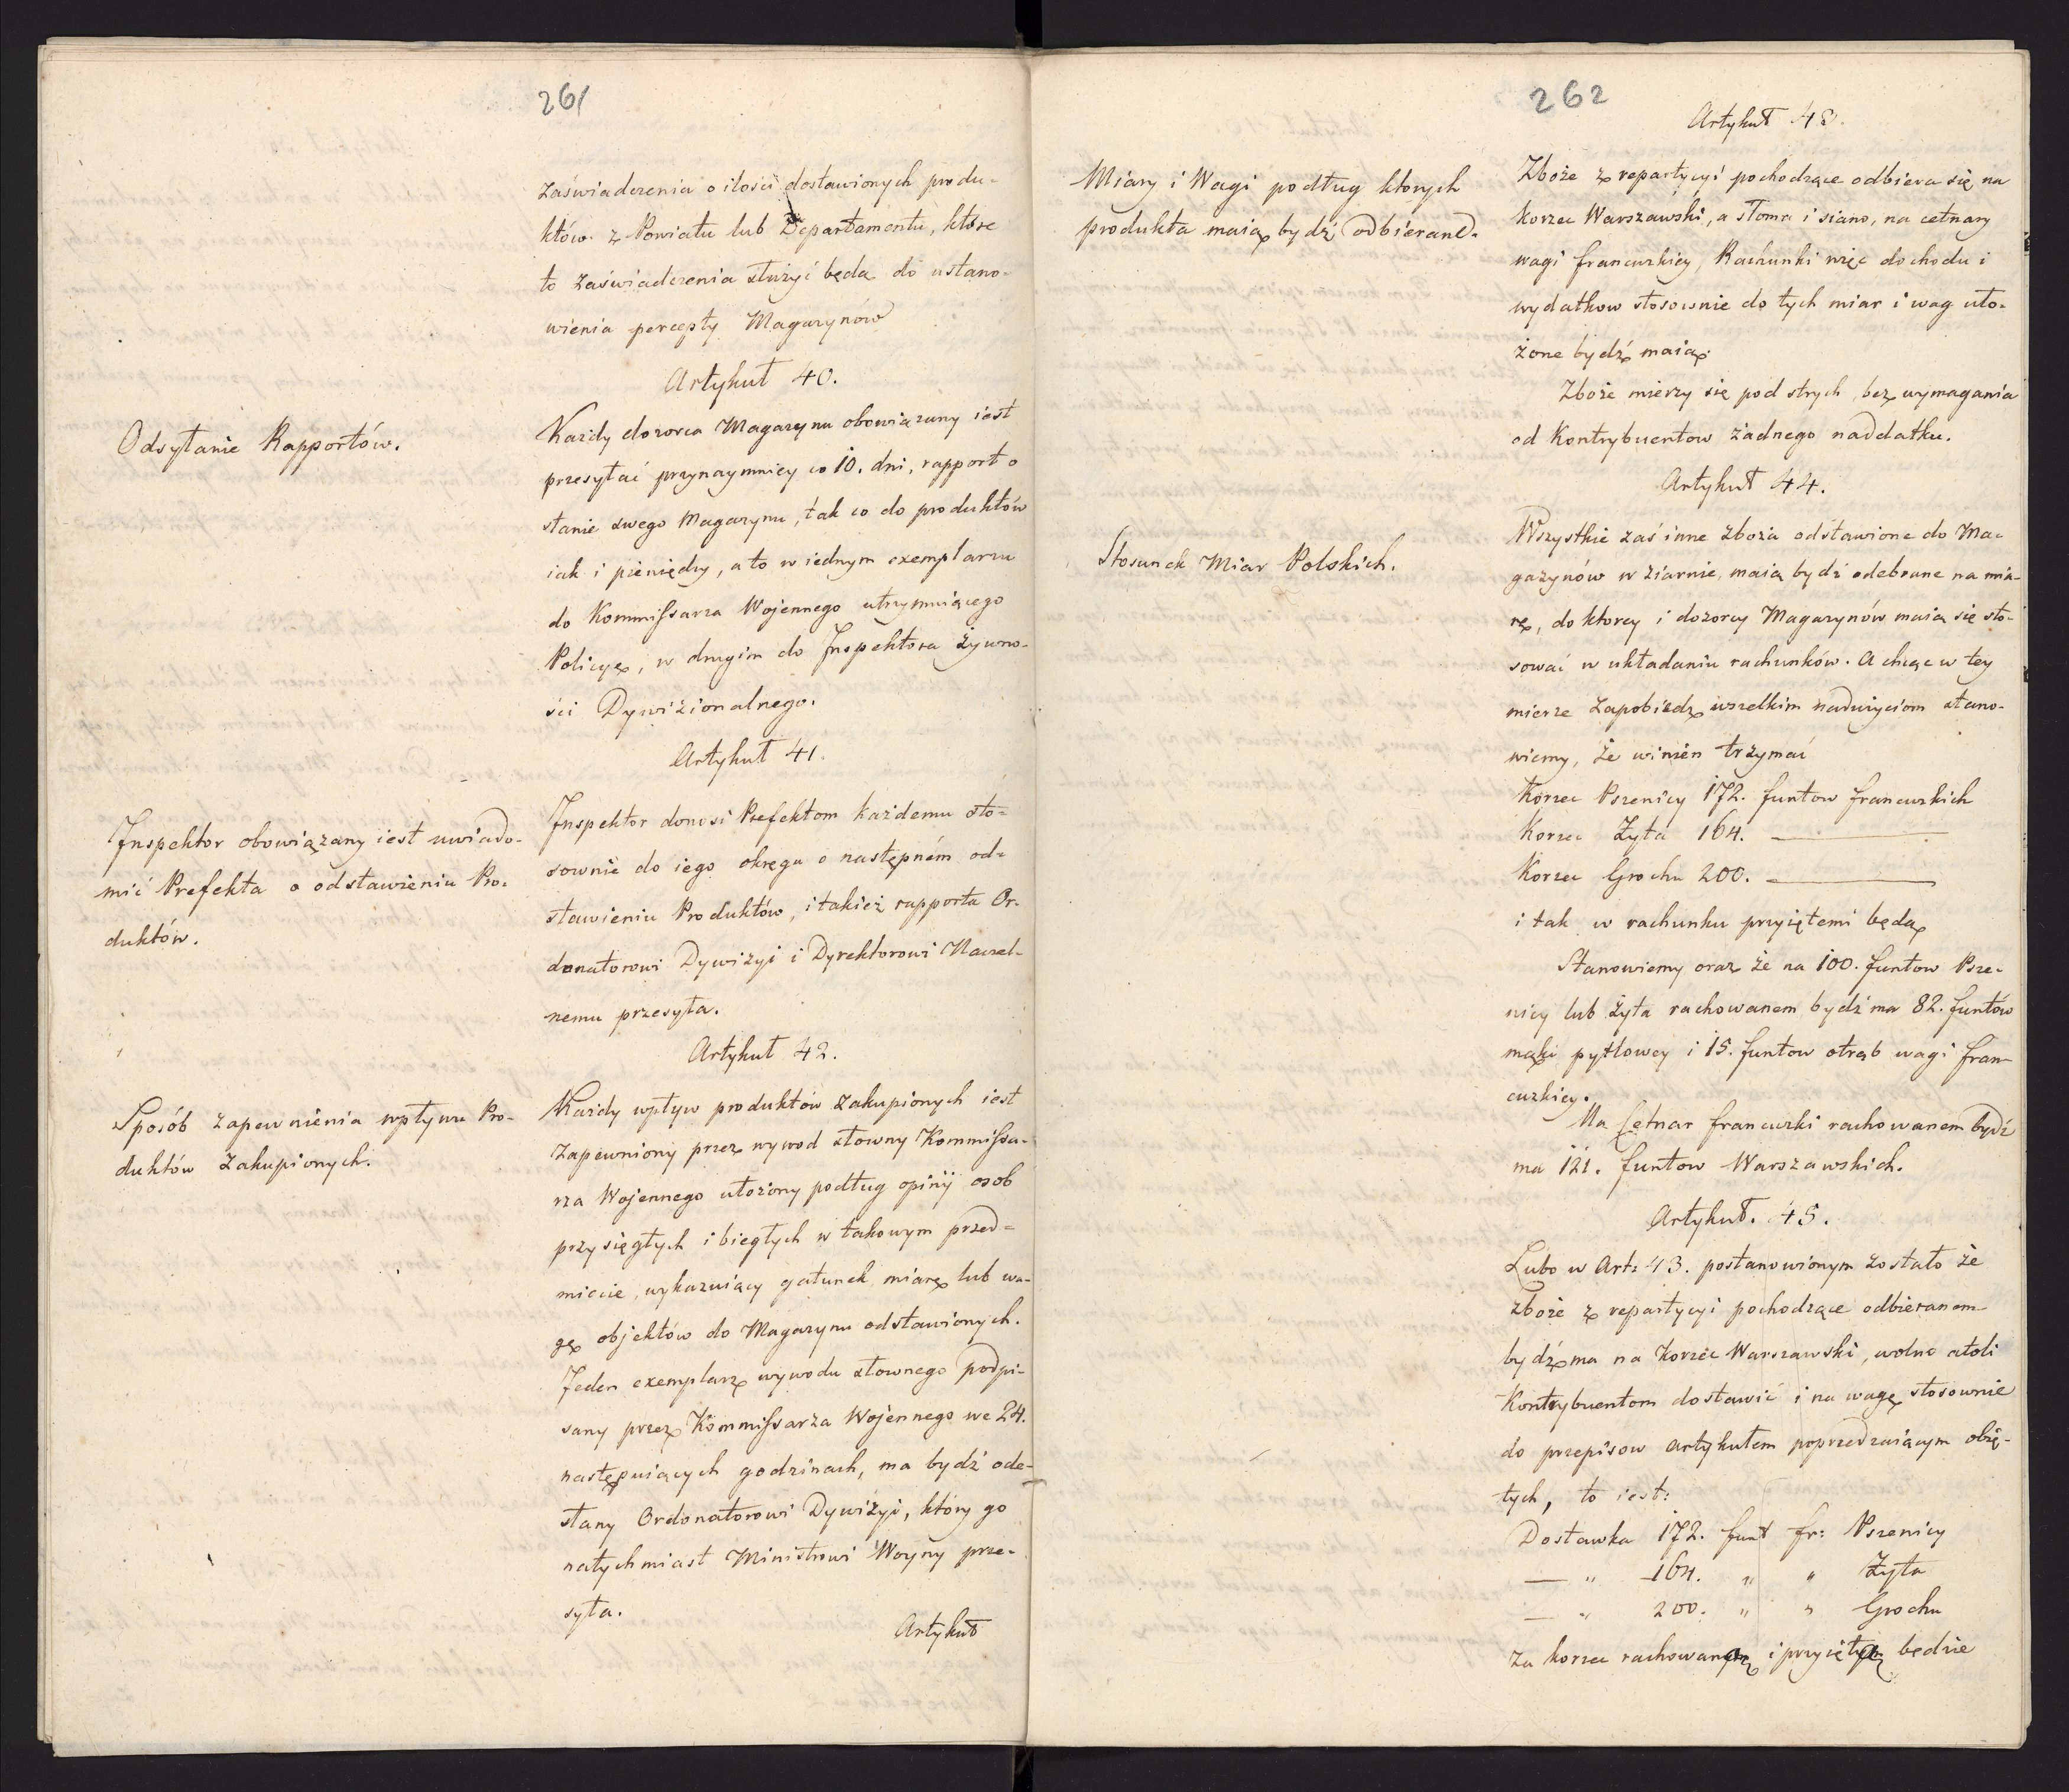 261
zaświadczenia o ilości dostawionych produ-
któw z Powiatu lub Departamentu, które
to zaświadczenia służyć będą do ustano-
wienia percepty Magazynów
Artykuł 40.
Odsyłanie Rapportów.
Każdy dozorca Magazynu obowiązany iest
przesyłać przynaymniey co 10. dni, rapport o
stanie swego Magazynu, tak co do produktów
iak i pieniędzy, a to w iednym exemplarzu
do Kommissarza Wojennego utrzymuiącego
Policyę, w drugim do Inspektora żywno-
ści Dywizionalnego.
Artykuł 41.
Inspektor obowiązany iest uwiado-
mić Prefekta o odstawieniu Pro-
duktów.
Inspektor donosi Prefektom każdemu sto-
sownie do iego okręgu o następném od-
stawieniu Produktów, i takież rapporta Or-
donatorowi Dywizyi i Dyrektorowi Naczel-
nemu przesyła.
Artykuł 42.
Sposób zapewnienia wpływu Pro-
duktów zakupionych.
Każdy wpływ produktów zakupionych iest
zapewniony przez wywod słowny Kommissa-
rza Wojennego ułożony podług opinij osob
przysięgłych i biegłych w takowym przed-
miocie, wykazuiący gatunek miarę lub wa-
gę objektów do Magazynu odstawionych.
Jeden exemplarz wywodu słownego podpi-
sany przez Kommissarza Wojennego we 24.
następuiących godzinach, ma bydź ode-
słany Ordonatorowi Dywizyi, który go
natychmiast Ministrowi Woyny prze-
syła.
Artykuł
262
Artykuł 43.
Miary i Wagi podług ktorych
produkta maią bydź odbierane.
Zboże z repartycyi pochodzące odbiera się na
korzec Warszawski, a słoma i siano, na cetnary
wagi francuzkiey, Rachunki więc dochodu i
wydatkow stosownie do tych miar i wag uło-
żone bydź maią.
Zboże mierzy się pod strych, bez wymagania
od Kontrybuentow żadnego naddatku.
Artykuł 44.
Stosunek Miar Polskich.
Wszystkie zaś inne zboża odstawione do Ma-
gazynów w ziarnie, maią bydź odebrane na mia-
rę, do ktorey i dozorcy Magazynów maią się sto-
sować w układaniu rachunków. A chcąc w tey
mierze zapobiedz wszelkim nadużyciom stano-
wiemy, że winien trzymać
Korzec Pszenicy 172. funtow francuzkich
Korzec Żyta 164. ———
Korzec Grochu 200. ———
i tak w rachunku przyiętemi będą
Stanowiemy oraz że na 100. funtow Psze-
nicy lub żyta rachowanem bydź ma 82. funtów
mąki pytlowey i 15. funtow otrąb wagi fran-
cuzkiey.
Na Cetnar francuzki rachowanem bydź
ma 121. funtow Warszawskich.
Artykuł. 45.
Lubo w Art: 43. postanowionym zostało że
zboże z repartycyi pochodzące odbieranem
bydź ma na Korzec Warszawski, wolno atoli
Kontrybuentom dostawić i na wagę stosownie
do przepisow artykułem poprzedzaiącym obię-
tych, to iest:
Dostawka 172. funt fr: Pszenicy
— " 164. " " Żyta
— " 200. " " Grochu
za korzec rachowaną i przyiętą będzie